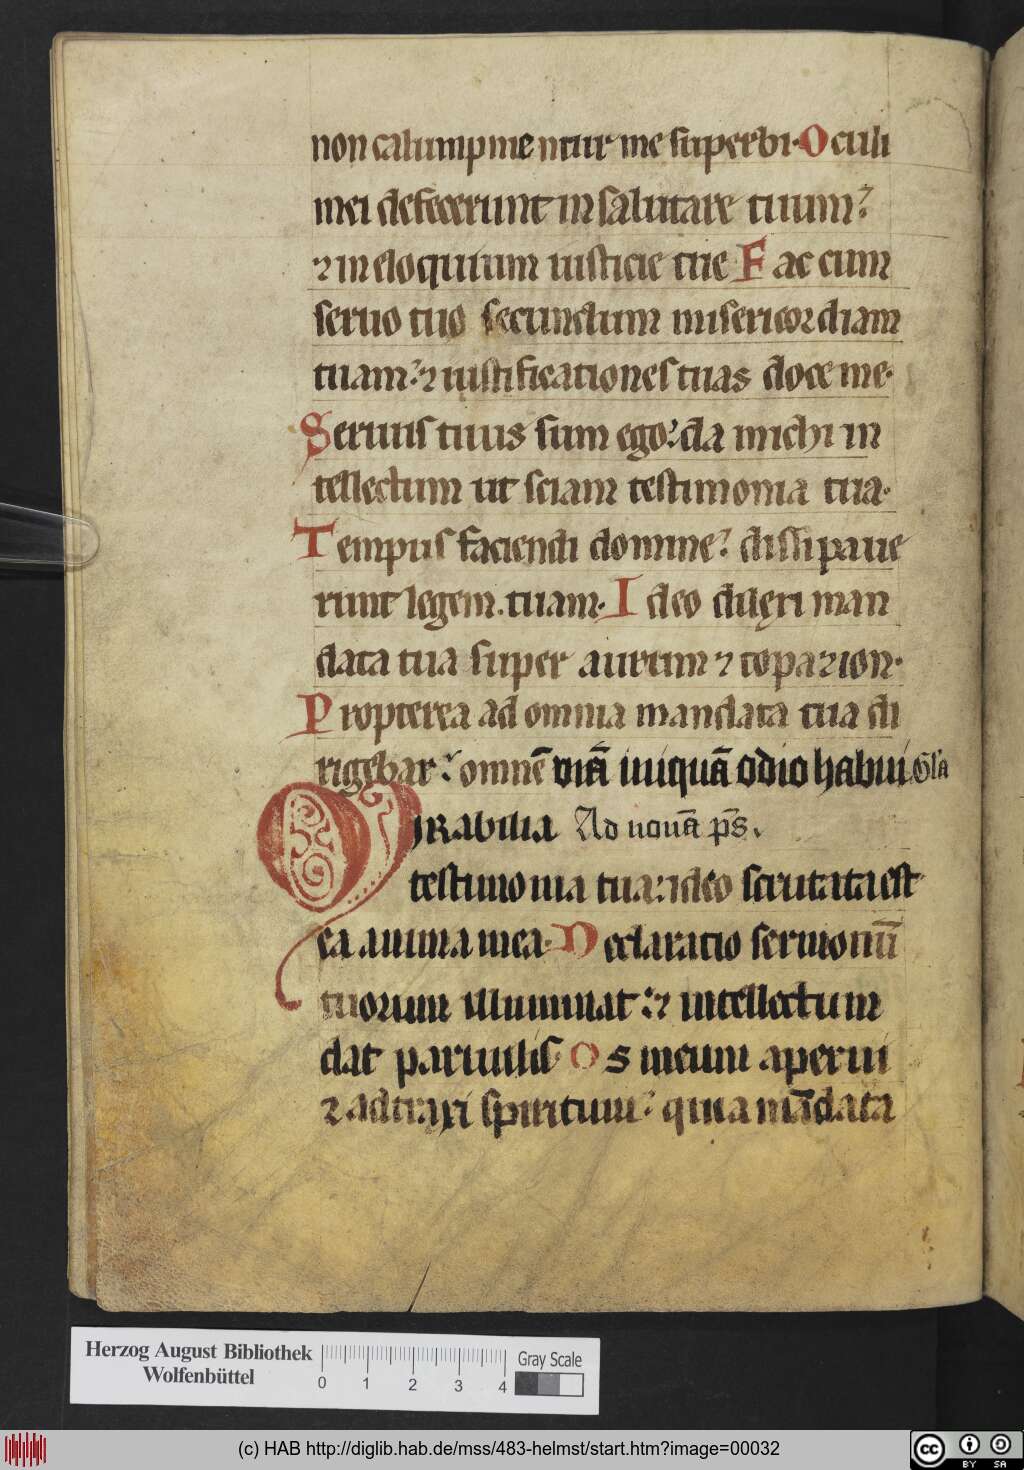 non calumpnientur me superbi· Oculi
mei defecerunt in salutare tuum?
⁊ in eloquium iusticie tue Fac cum
seruo tuo secundum misericordiam
tuam:⁊ iustificationes tuas doce me·
Seruus tuus sum ego: da michi in
tellectum ut sciam testimonia tua·
Tempus faciendi domine? dissipaue
runt legem tuam· Ideo dilexi man
data tua super aurum ⁊ topazion·
Propterea ad omnia mandata tua di
rigebar: omnē viā iniquā odio habui. Gl'a
MIRabilia Ad nonā ps̄.
testimonia tua: ideo scrutata est
ea anima mea· Declaratio sermonū
tuorum illuminat:⁊ intellectum
dat paruulis Os meum aperui
⁊ adtraxi spiritum? quia mādata
Herzog August Bibliothek
Wolfenbüttel
0 1 2 3 4
Gray Scale
(c) HAB http://diglib.hab.de/mss/483-helmst/start.htm?image=00032
cc BY SA